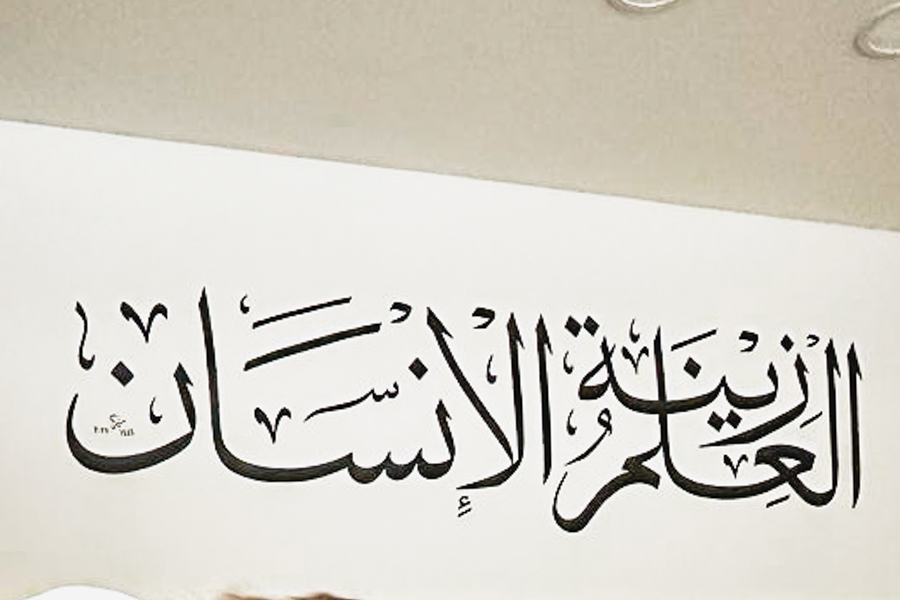 العِلمُ زينة الإنسان